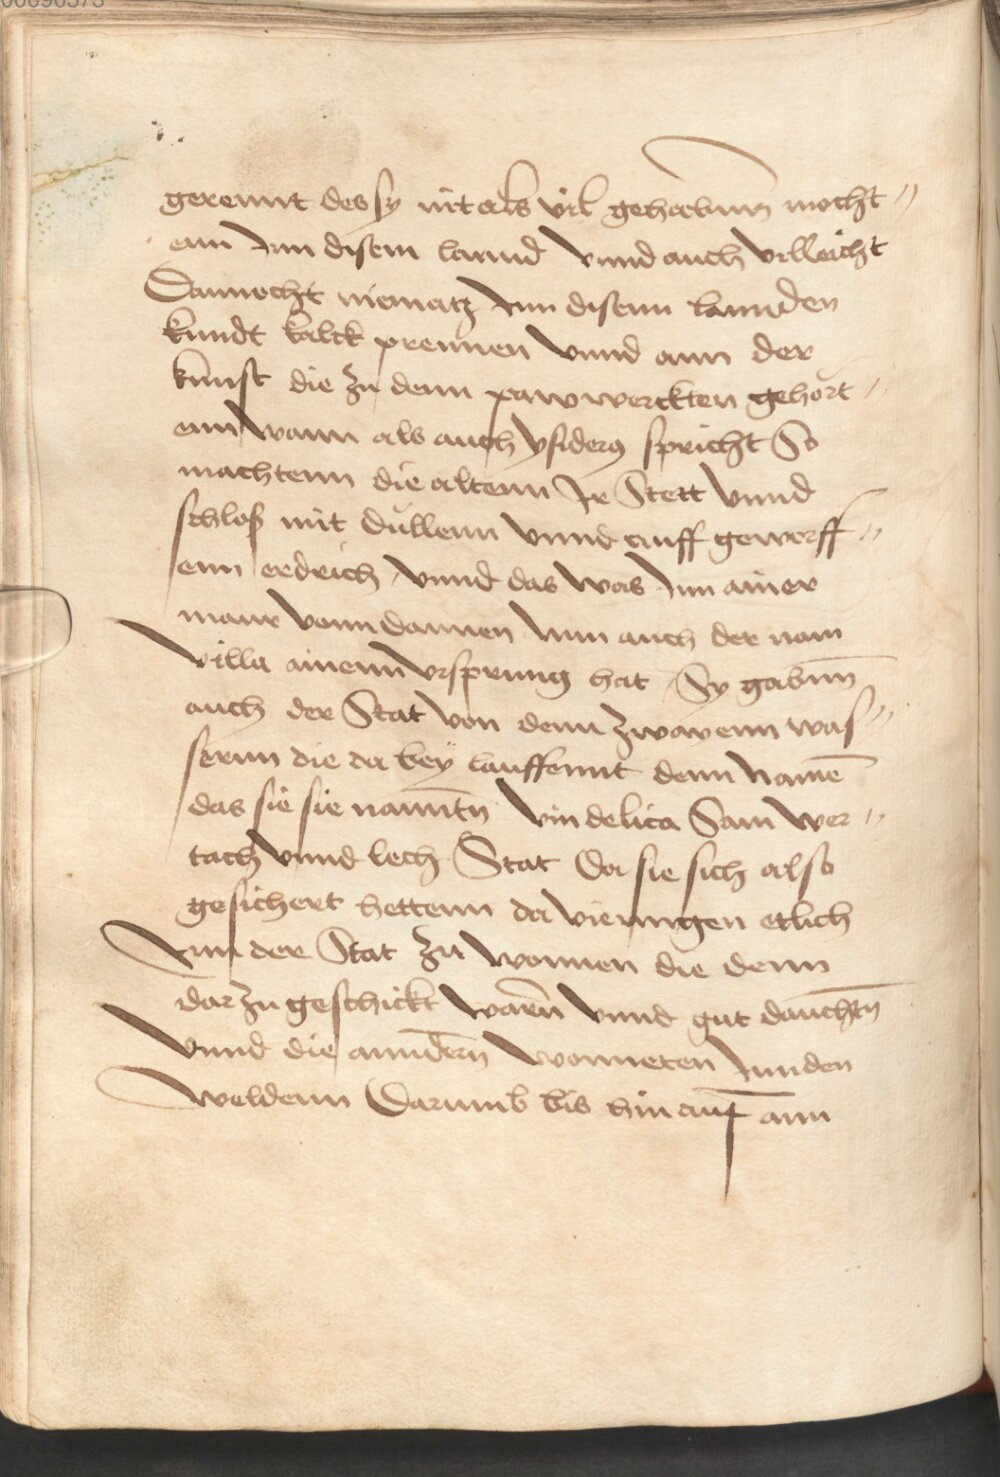 gerennt des sy nit als vil gehabunn mocht„
enn Inn disem lannd vnnd auch villeicht
Dannocht niematz Inn disenn lannden
kundt kalck prennen vnnd ann der
kunst die zu denn pawwerckten gehört„
enn wann als auch ysiderus spricht So
machtenn die altenn Jr Stett vnnd
schloß mit düllenn vnnd auff geworff„
enn erdrich vnnd das was Inn ainer
maur vonn dannen Inn auch der nam
villa ainenn vrsprung hat Sy gabunn
auch der Stat von denn zwayenn was„
sernn die da bey lauffennt denn namē
das sie sie nanntn̄ Vindelica Sam wer„
tach vnnd lech Stat Da sie sich also
gesichert hettenn da viennngen etlich
Inn der Stat zu wonnen die denn
dar zu geschickt warn̄ vnnd gut dauchtn̄
Vnnd die anndern̄ wonneten Inn den
weldenn Darumb bis hin auf ann